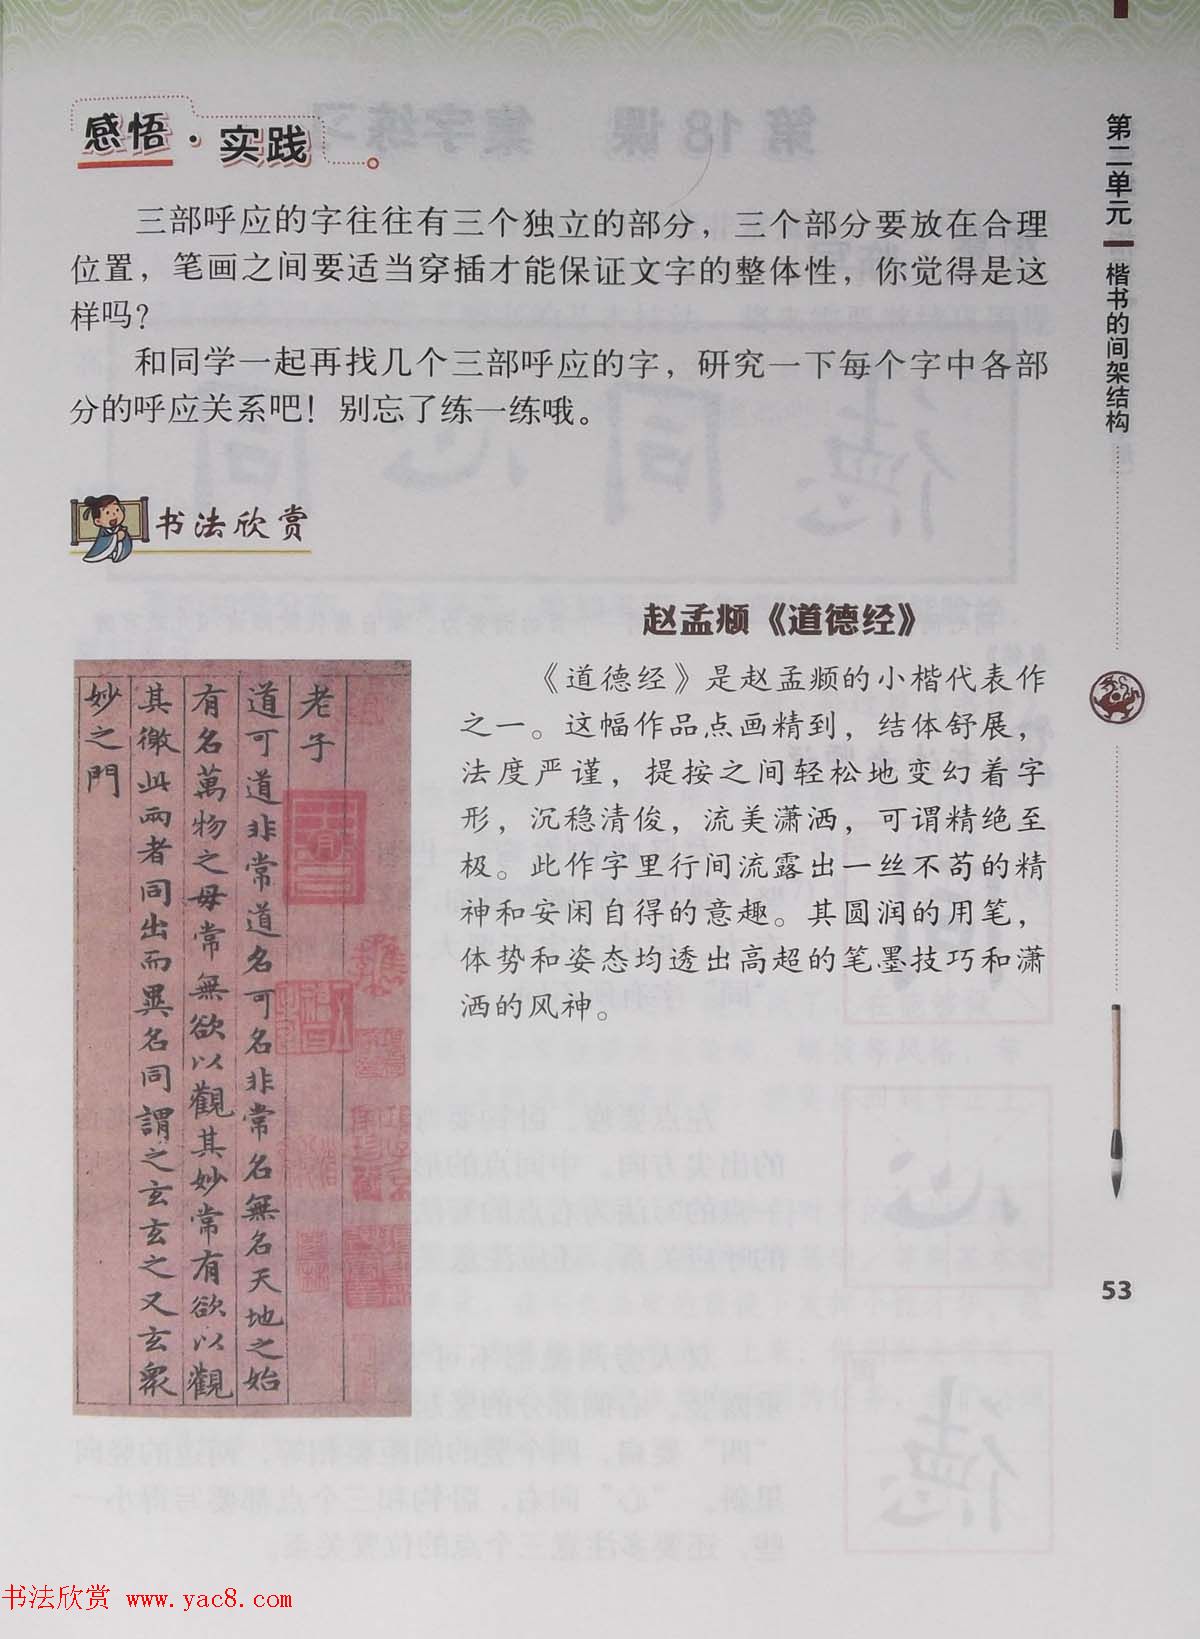 感悟·实践
三部呼应的字往往有三个独立的部分，三个部分要放在合理
位置，笔画之间要适当穿插才能保证文字的整体性，你觉得是这
样吗？
和同学一起再找几个三部呼应的字，研究一下每个字中各部
分的呼应关系吧！别忘了练一练哦。
书法欣赏
赵孟頫《道德经》
《道德经》是赵孟頫的小楷代表作
之一。这幅作品点画精到，结体舒展，
法度严谨，提按之间轻松地变幻着字
形，沉稳清俊，流美潇洒，可谓精绝至
极。此作字里行间流露出一丝不苟的精
神和安闲自得的意趣。其圆润的用笔，
体势和姿态均透出高超的笔墨技巧和潇
洒的风神。
老子
道可道非常道名可名非常名無名天地之始
有名萬物之母常無欲以觀其妙常有欲以觀
其徼此兩者同出而異名同謂之玄玄之又玄眾
妙之門
第二单元
楷书的间架结构
53
书法欣赏 www.yac8.com